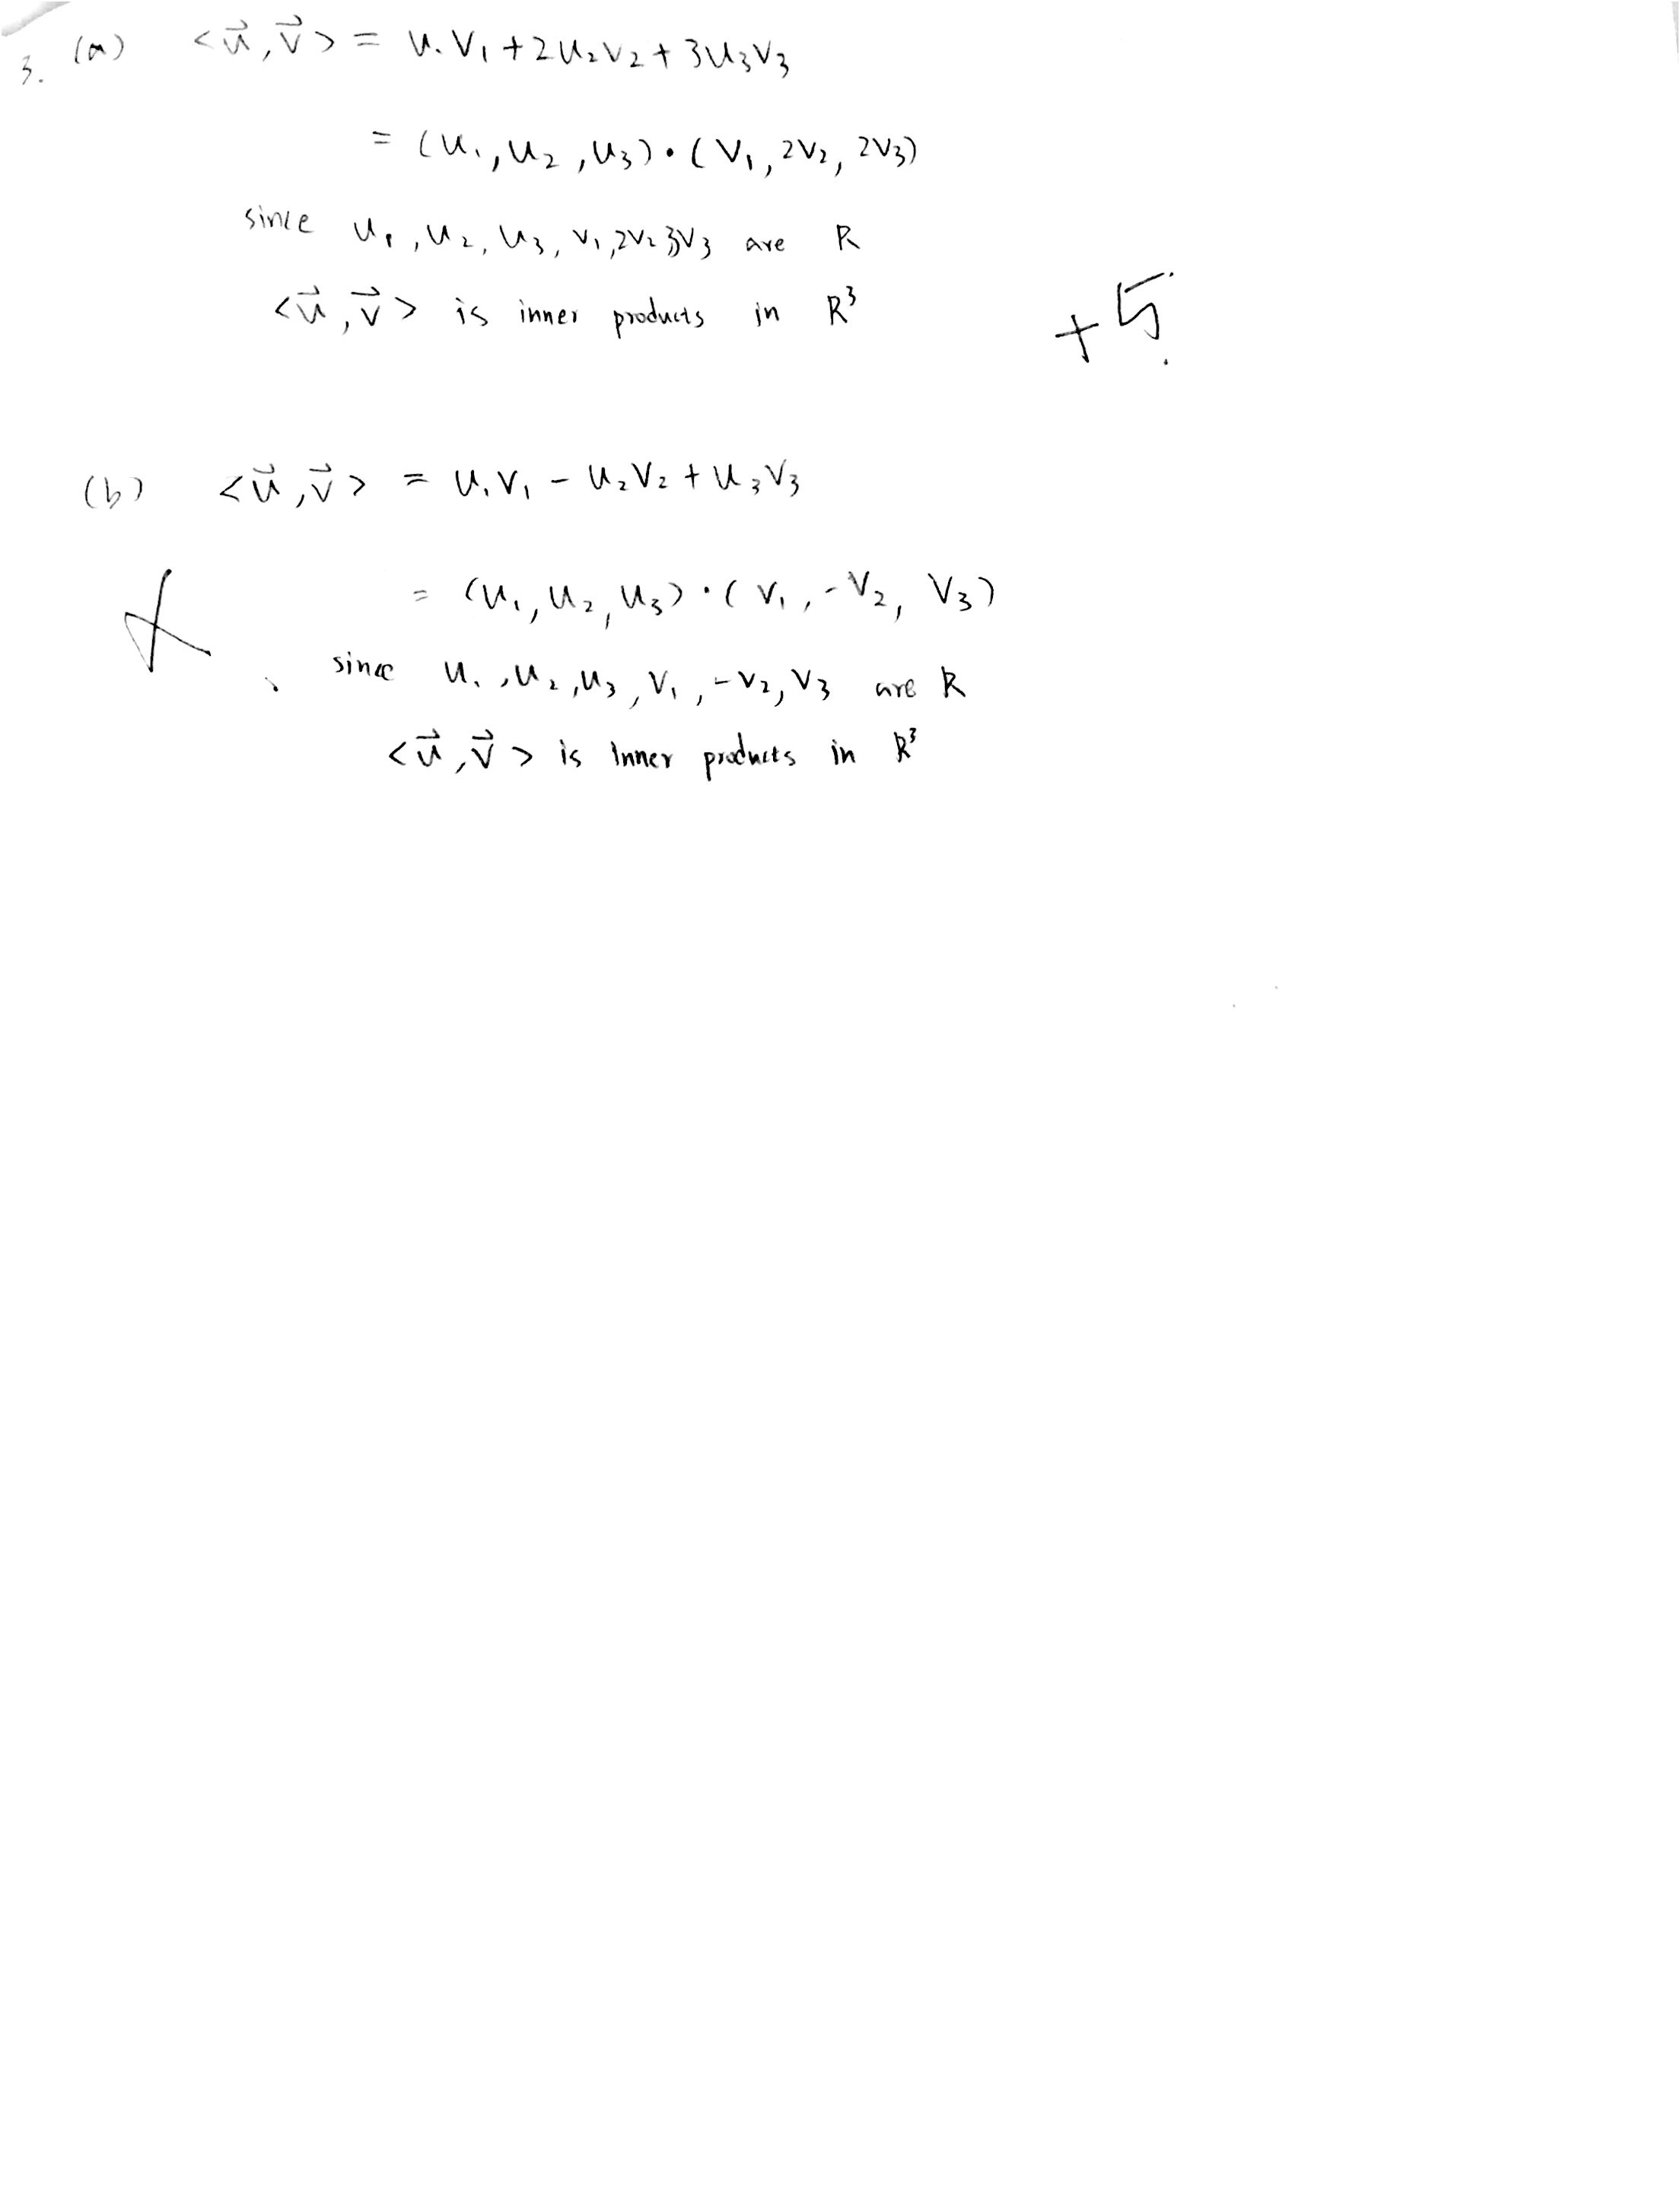 3. (a) <u⃗, v⃗> = u₁v₁ + 2u₂v₂ + 3u₃v₃
= (u₁, u₂, u₃) · (v₁, 2v₂, 2v₃)
since u₁, u₂, u₃, v₁, 2v₂ 3v₃ are R
<u⃗, v⃗> is inner products in R³
+5
(b) <u⃗, v⃗> = u₁v₁ - u₂v₂ + u₃v₃
= (u₁, u₂, u₃) · (v₁, -v₂, v₃)
since u₁, u₂, u₃, v₁, -v₂, v₃ are R
<u⃗, v⃗> is inner products in R³